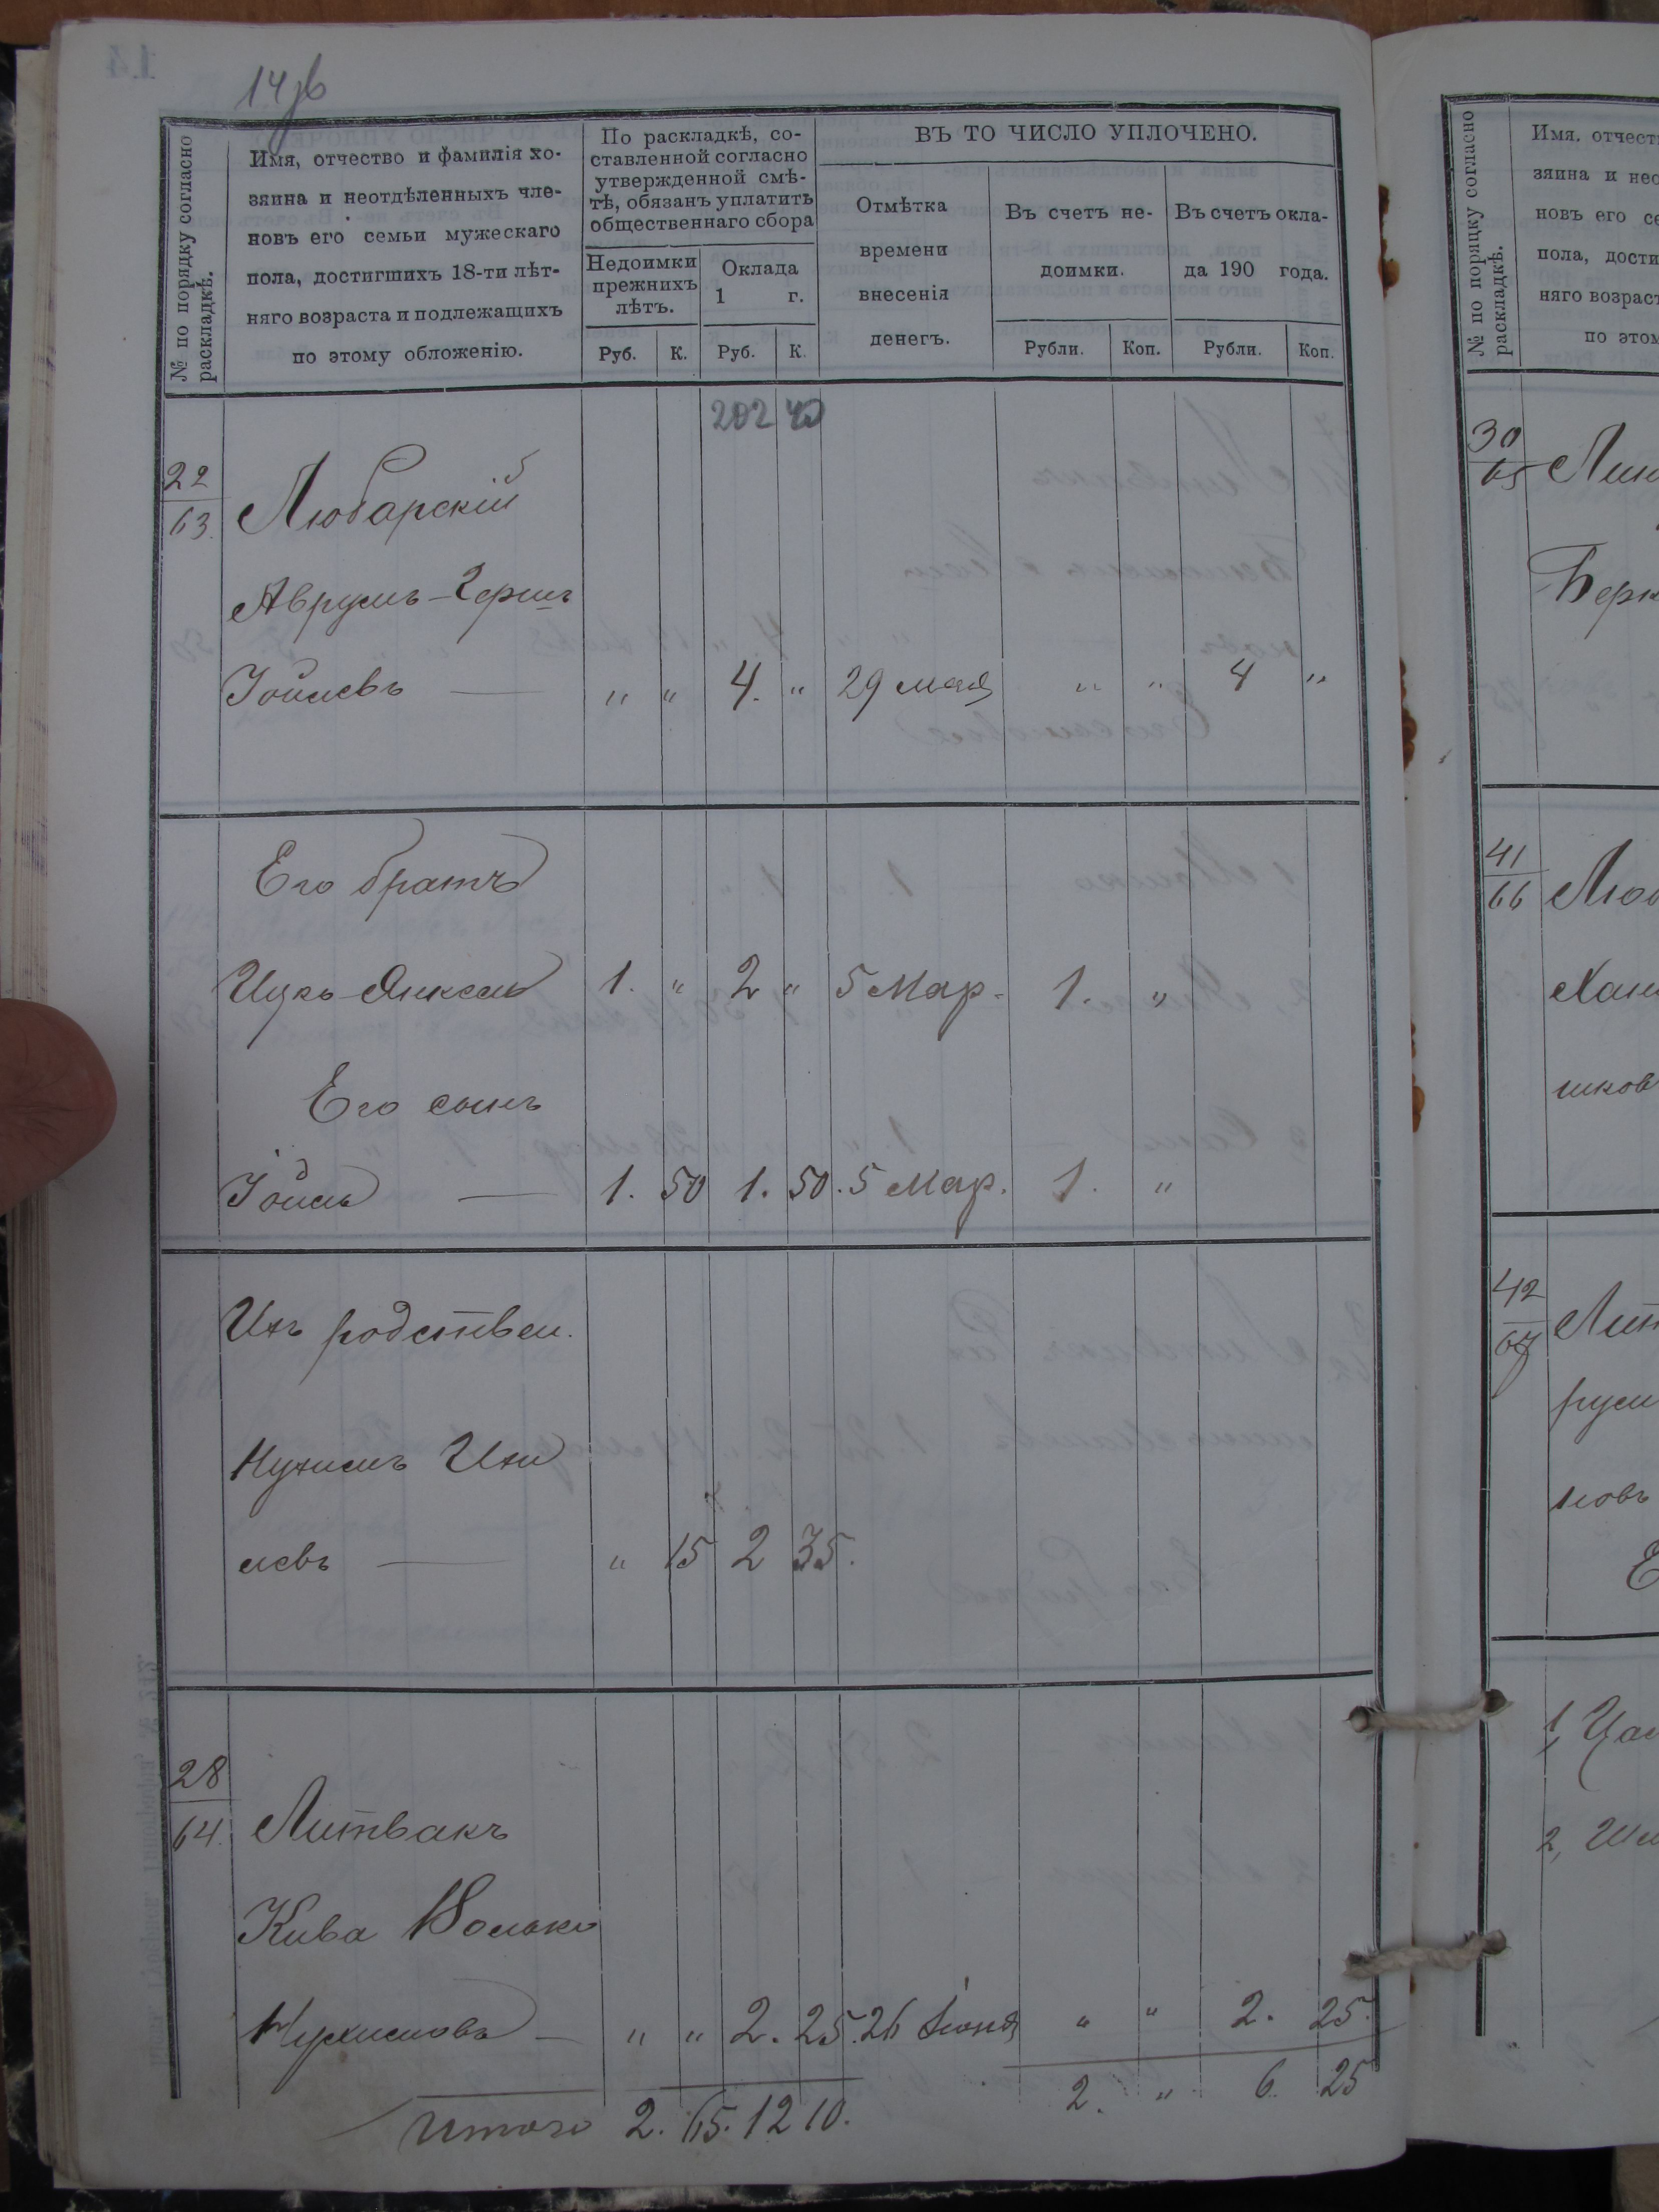 14 об
№ по порядку согласно раскладкѣ.
Имя, отчество и фамилія хо-
зяина и неотдѣленныхъ чле-
новъ его семьи мужескаго
пола, достигшихъ 18-ти лѣт-
няго возраста и подлежащихъ
по этому обложенію.
По раскладкѣ, со-
ставленной согласно
утвержденной смѣ-
тѣ, обязанъ уплатить
общественнаго сбора
Недоимки
прежнихъ
лѣтъ.
Оклада
1 г.
Руб. К. Руб. К.
ВЪ ТО ЧИСЛО УПЛОЧЕНО.
Отмѣтка
времени
внесенія
денегъ.
Въ счетъ не-
доимки.
Въ счетъ окла-
да 190 года.
Рубли. Коп. Рубли. Коп.
202 40
22
63. Любарскій
Аврумъ-Герш
Іойлевъ — „ „ 4. „ 29 мая „ „ 4 „
Его братъ
Ицко-Янкель 1. „ 2 „ 5 Мар. 1. „
Его сынъ
Іойль — 1. 50 1. 50. 5 Мар. 1. „
Ихъ родствен.
Нухимъ Ихи
левъ — „ 15 2 35.
28
64. Литвакъ
Кива Волько
Нухимовъ — „ „ 2. 25. 26 Іюня „ „ 2. 25.
Итого 2. 65. 12 10. 2. „ 6. 25
№ по порядку согласно раскладкѣ.
Имя, отчест
зяина и нео
новъ его се
пола, дости
няго возраст
по этом
30
65
Берк
41
66 Люб
Хаим
шков
42
67 Лит
рум
ловъ
Е
1,
2,